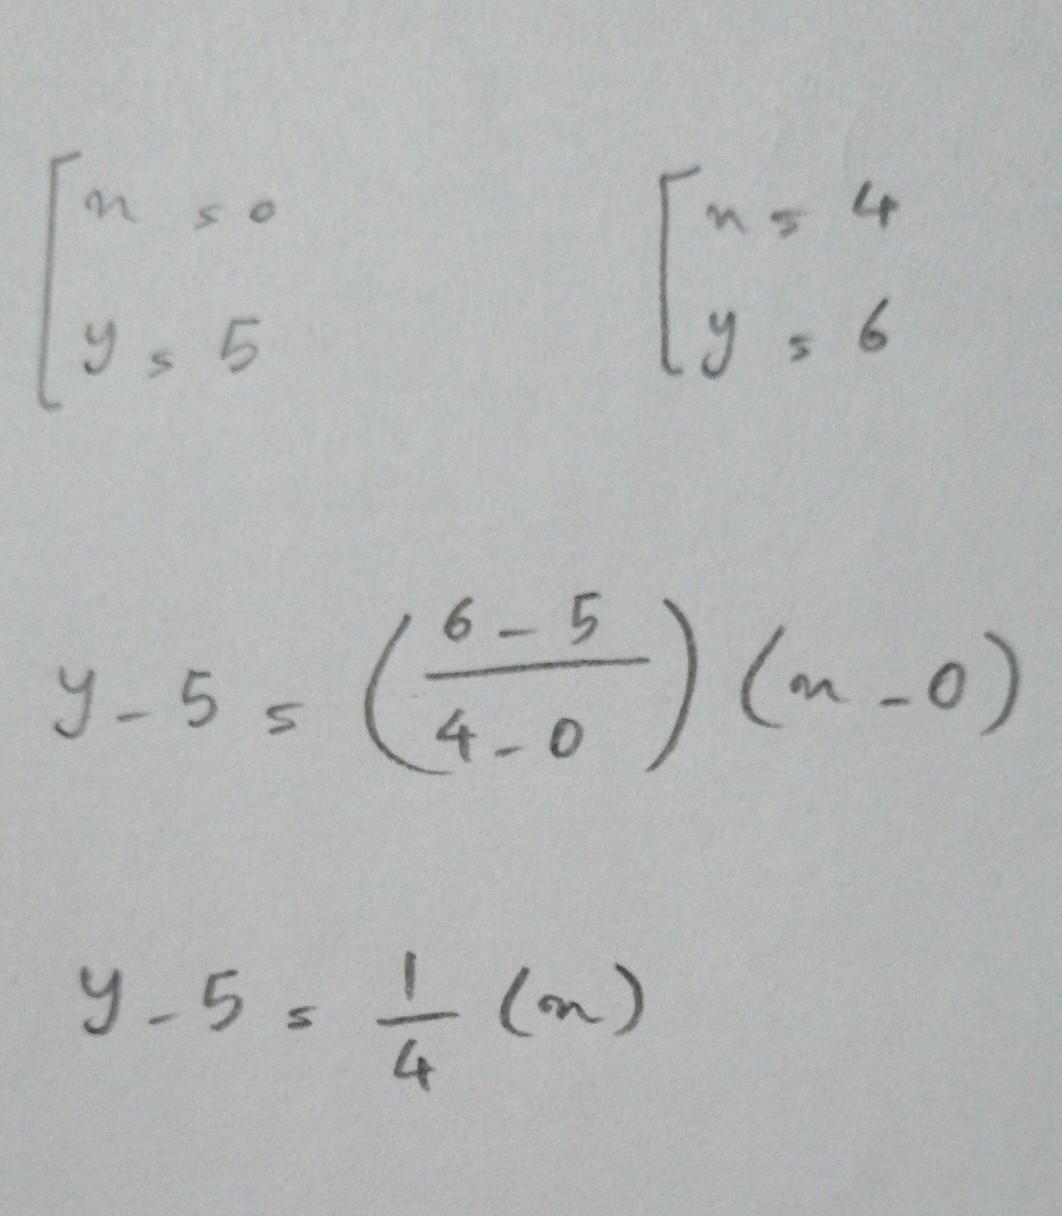 [x = 0 [x = 4
[y = 5 [y = 6
y - 5 = (6 - 5 / 4 - 0) (x - 0)
y - 5 = 1/4 (x)